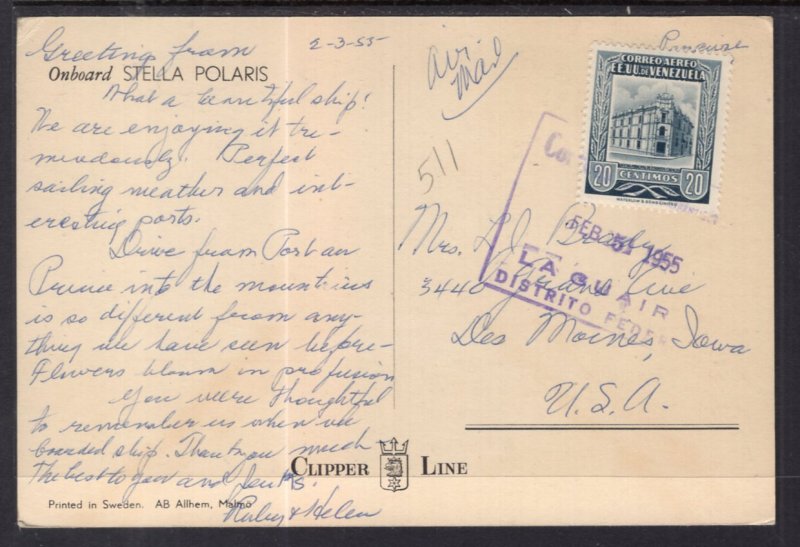 Greeting from
2-3-55
Onboard STELLA POLARIS
What a beautiful ship!
We are enjoying it tre-
mendously. Perfect
sailing weather and int-
eresting ports.
Drive from Port au
Prince into the mountains
is so different from any-
thing we have seen before-
Flowers bloom in profusion
You were thoughtful
to remember us when we
boarded ship. Thank you much
The best to you and
Ruby & Helen
Printed in Sweden. AB Allhem, Malmö
CLIPPER LINE
Air
Mail
511
CORREO AEREO
EE.UU. DE VENEZUELA
20 CENTIMOS 20
FEB 5 1955
LA GUAIR
DISTRITO FEDER
Mrs. L. J.
3440 Ave
Des Moines, Iowa
U.S.A.